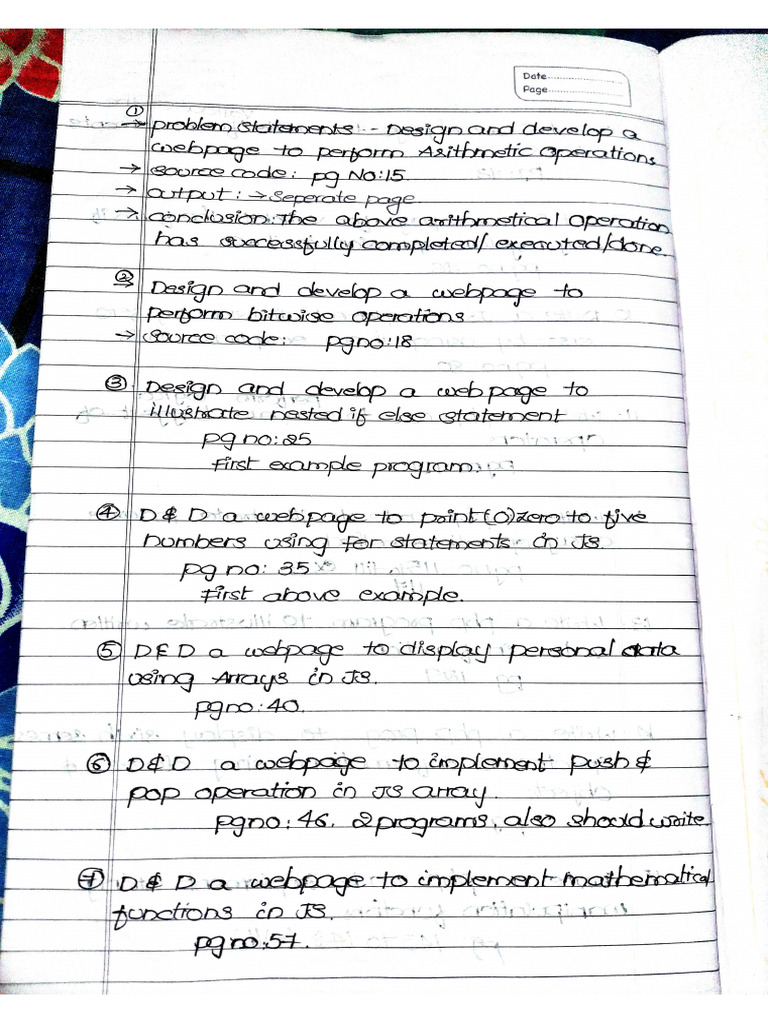 Date
Page
①
→ problem statements :- Design and develop a
webpage to perform Arithmetic Operations
→ source code: pg No:15.
→ output: → Seperate page.
→ conclusion: The above arithmetical operation
has successfully completed/executed/done.
② → Design and develop a webpage to
perform bitwise operations
→ source code: pg no:18
③ Design and develop a web page to
illustrate nested if else statement
pg no:25
First example program.
④ D & D a webpage to print (0) zero to five
numbers using for statements in JS.
pg no: 35
First above example.
⑤ D & D a webpage to display personal data
using Arrays in JS.
pg no:40.
⑥ D & D a webpage to implement push &
pop operation in JS array.
pg no:46. 2 programs, also should write
⑦ D & D a webpage to implement mathematical
functions in JS.
pg no:57.